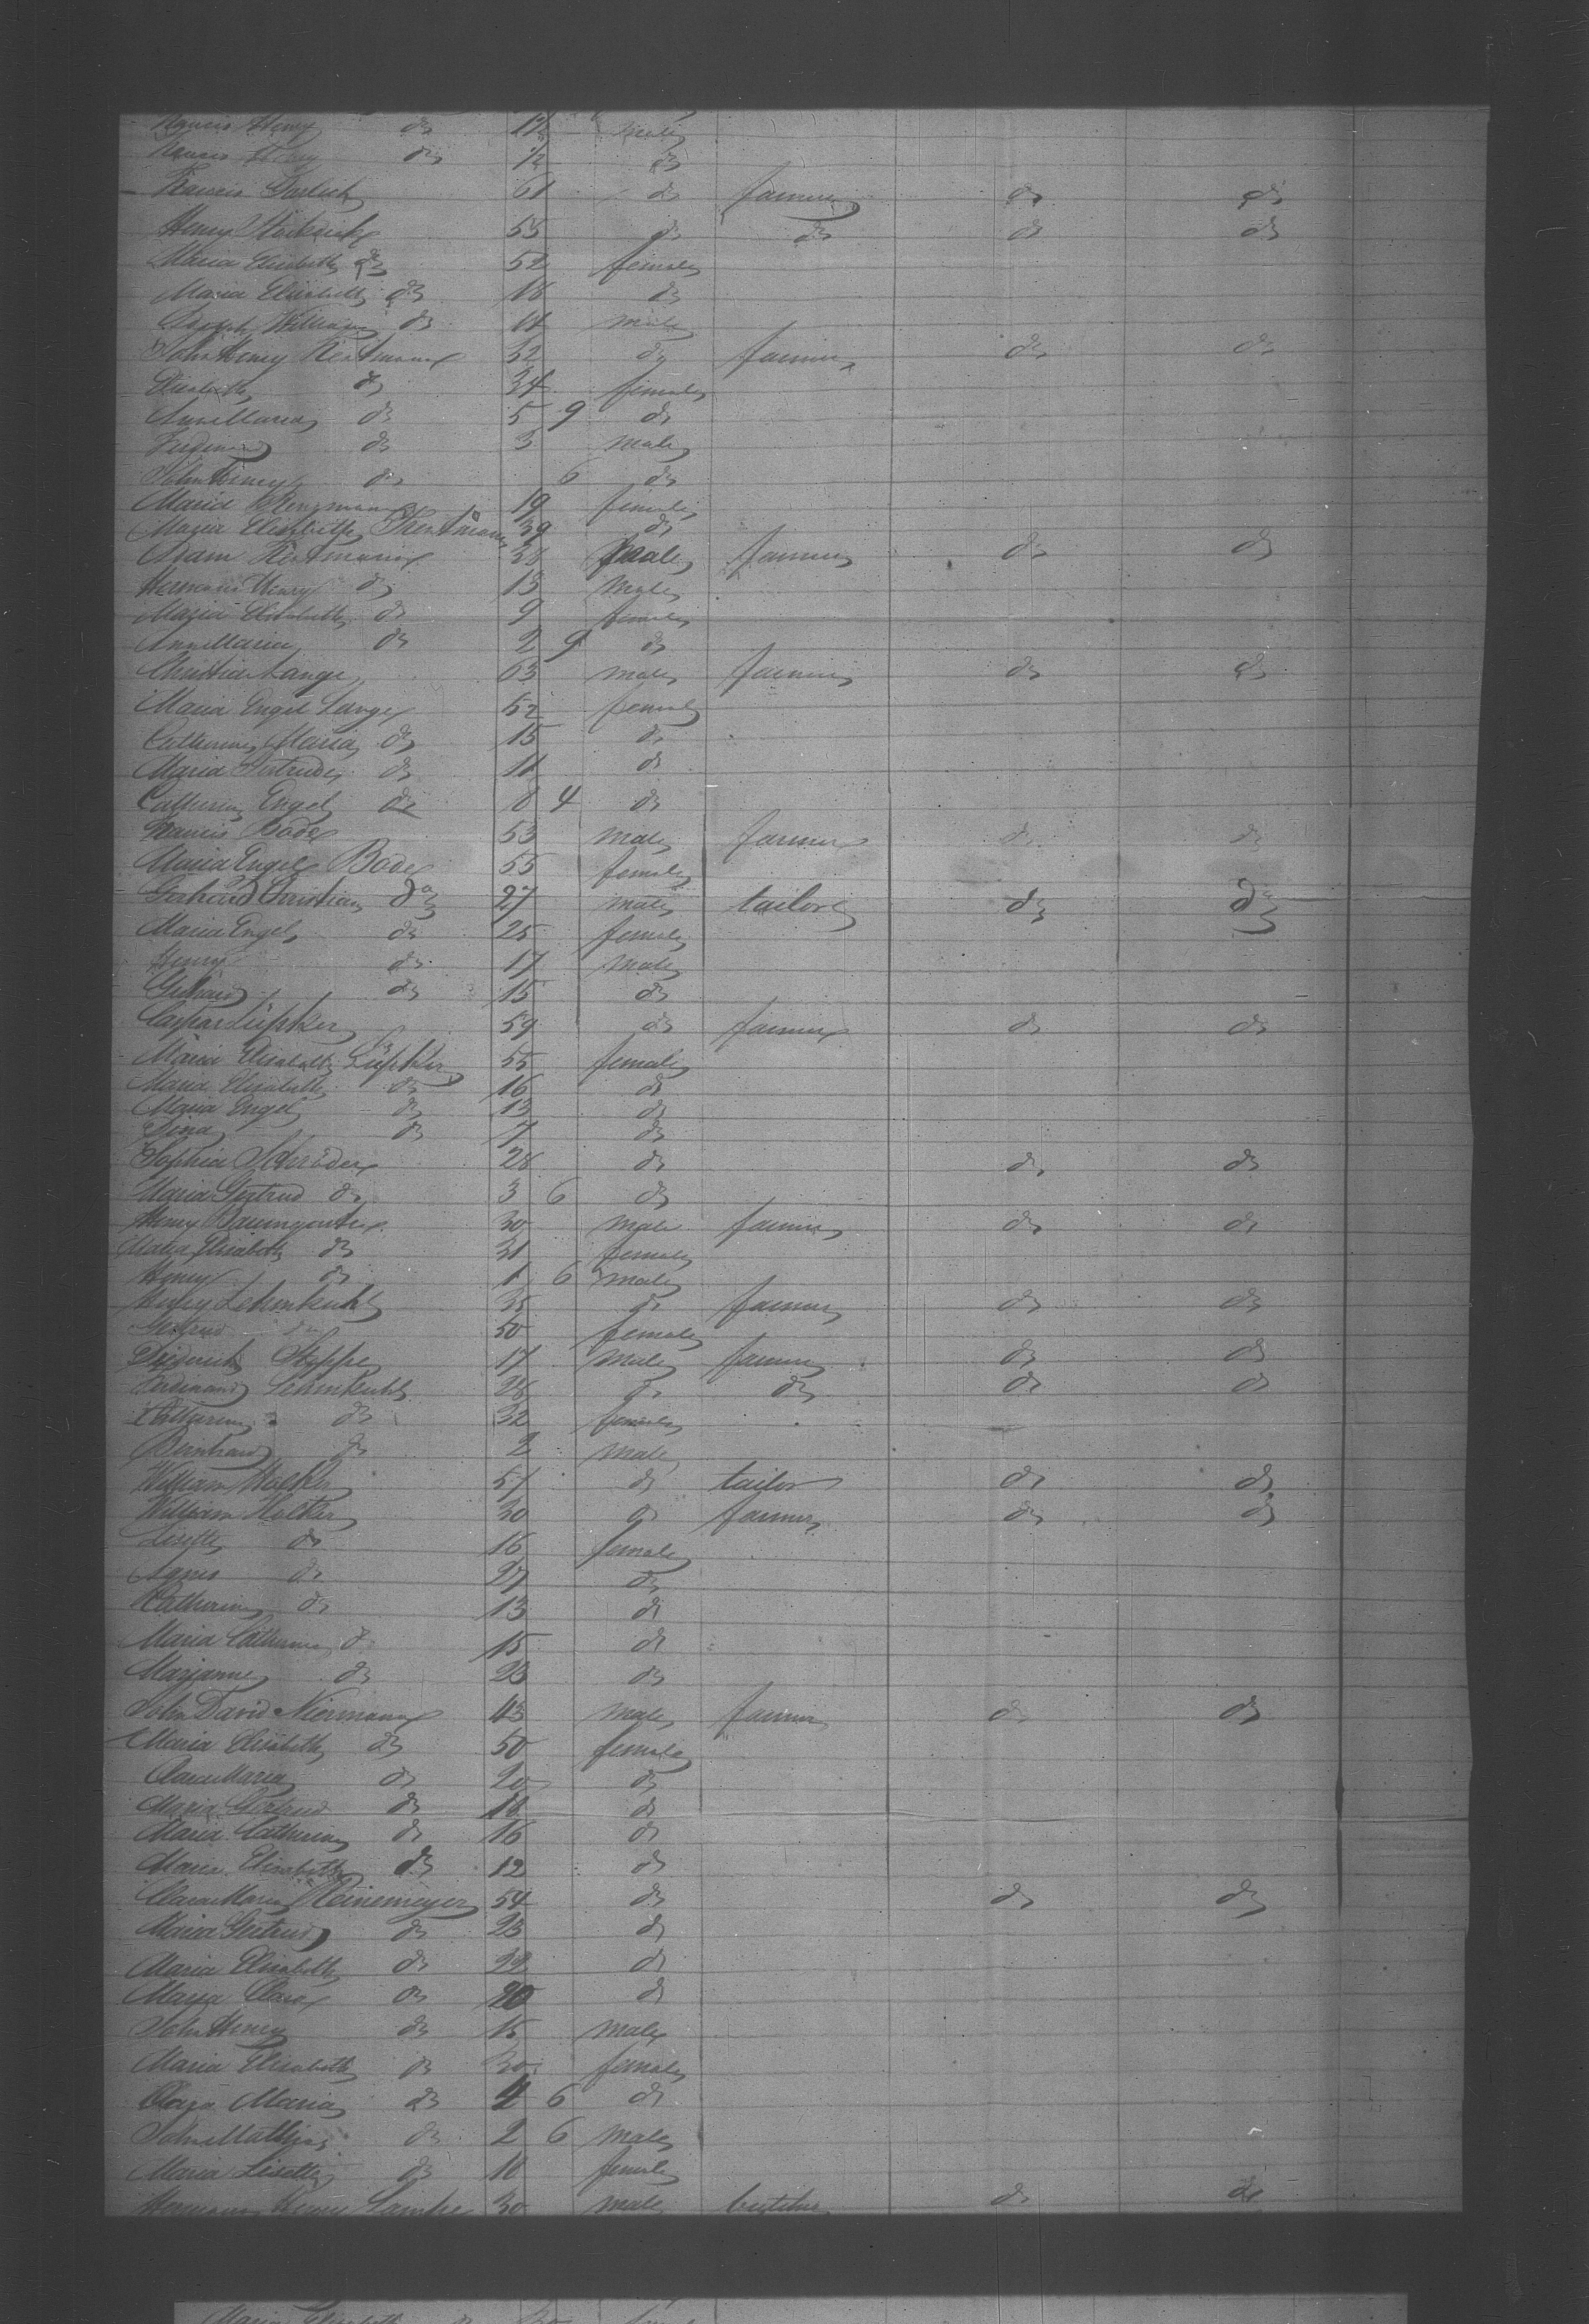 Francis Henry do male
Francis Henry do 1/2 do
Francis 61 do farmer do do
Henry 55 do do do do
Maria Elisabeth do 52 female
Maria Elisabeth do 18 do
Joseph William do male
John Henry 32 do farmer do do
Elisabeth do 34 female
Anna Maria do 5 9 do
Ferdinand do 3 male
John Henry do 6 do
Maria 19 female
Maria Elisabeth 39 do
38 male farmer do do
Hermann Henry do 13 male
Maria Elisabeth do 9 female
Anna Maria do 2 9 do
Christian Lange 63 male farmer do do
Maria Engel Lange 52 female
Catherine Maria do 15 do
Maria Gertrude do 11 do
Catherine Engel do 8 4 do
Francis Bode 53 male farmer do do
Maria Engel Bode 55 female
Gerhard Christian do 27 male tailor do do
Maria Engel do 25 female
Henry do 17 male
Gerhard do 15 do
Caspar Lüpker 59 do farmer do do
Maria Elisabeth Lüpker 55 female
Maria Elisabeth do 16 do
Maria Engel do 13 do
do 7 do
Sophia Schröder 28 do do do
Maria Gertrud do 3 6 do
Henry 30 male farmer do do
Maria Elisabeth do 31 female
Henry do 1 6 male
Henry Lehmkuhl 35 do farmer do do
Gertrud do 50 female
Friderich 17 male farmer do do
Ferdinand Lehmkuhl 28 do do do do
Catharina do 32 female
Bernhard do 2 male
William 51 do tailor do do
William Holker 30 do farmer do do
Lisette do 16 female
Agnes do 27 do
Catherine do 13 do
Maria Catherine do 15 do
Marianne do 23 do
John David Niermann 43 male farmer do do
Maria Elisabeth do 50 female
Clara Maria do 20 do
Maria Gertrud do 18 do
Maria Catherine do 16 do
Maria Elisabeth do 12 do
Clara Maria Heinemeyer 54 do do do
Maria Gertrud do 23 do
Maria Elisabeth do 22 do
Maria Clara do 20 do
John Henry do 15 male
Maria Elisabeth do 30 female
Clara Maria do 4 6 do
John Mathias do 2 6 male
Maria Lisette do 10 female
Hermann Henry 30 male butcher do do
Maria Elisabeth